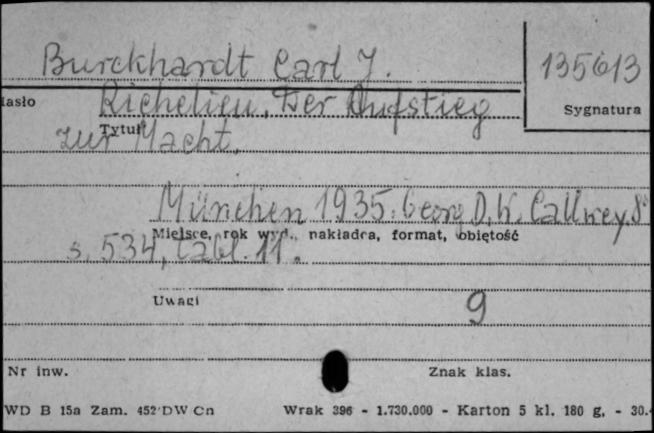 Burckhardt Carl J.
135613
Hasło
Richelieu, Der Aufstieg
Sygnatura
Tytuł
zur Macht.
München 1935. Georg D. W. Callwey. 8°
Miejsce, rok wyd., nakładca, format, objętość
s. 534, tabl. 11.
Uwagi
9
Nr inw.
Znak klas.
WD B 15a Zam. 452 DW Cn
Wrak 396 - 1.730.000 - Karton 5 kl. 180 g, - 30.